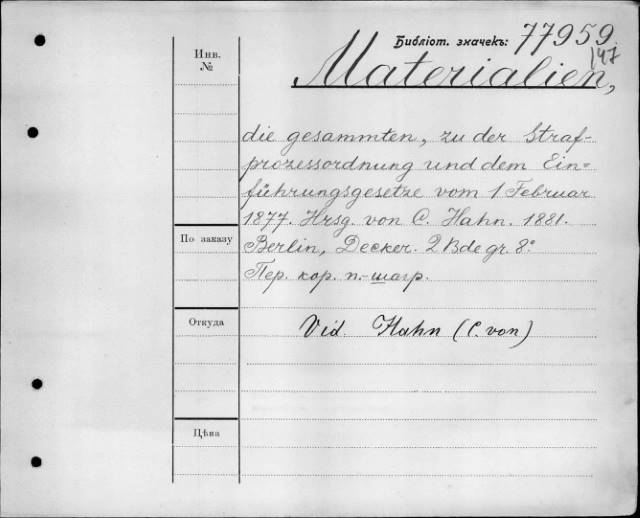 Библіот. значекъ: 77959
147
Инв.
№
Materialien,
die gesammten, zu der Straf-
prozessordnung und dem Ein=
führungsgesetze vom 1 Februar
1877. Hrsg. von C. Hahn. 1881.
По заказу
Berlin, Decker. 2 Bde gr. 8º
Пер. кор. п.-шагр.
Откуда
Vid. Hahn (C. von)
Цѣна